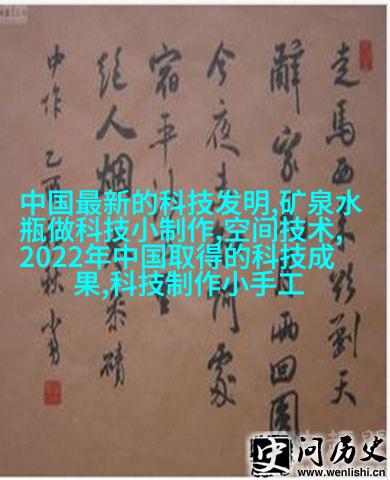 走馬西来欲到天
辭家 两回圆
今夜 處
宿平沙
絕人烟 岑参磧
中作 乙酉秋
中国最新的科技发明,矿泉水
瓶做科技小制作,空间技术,
2022年中国取得的科技成
果,科技制作小手工
史问历史
www.wenlishi.cn